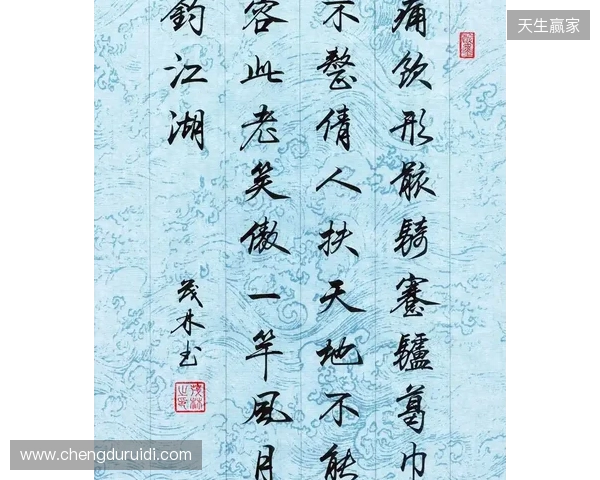 痛飲形骸騎蹇驢葛巾
不整倩人扶天地不能
容此老笑傲一竿風月
釣江湖
茂林书
天生赢家
www.chengduruidi.com